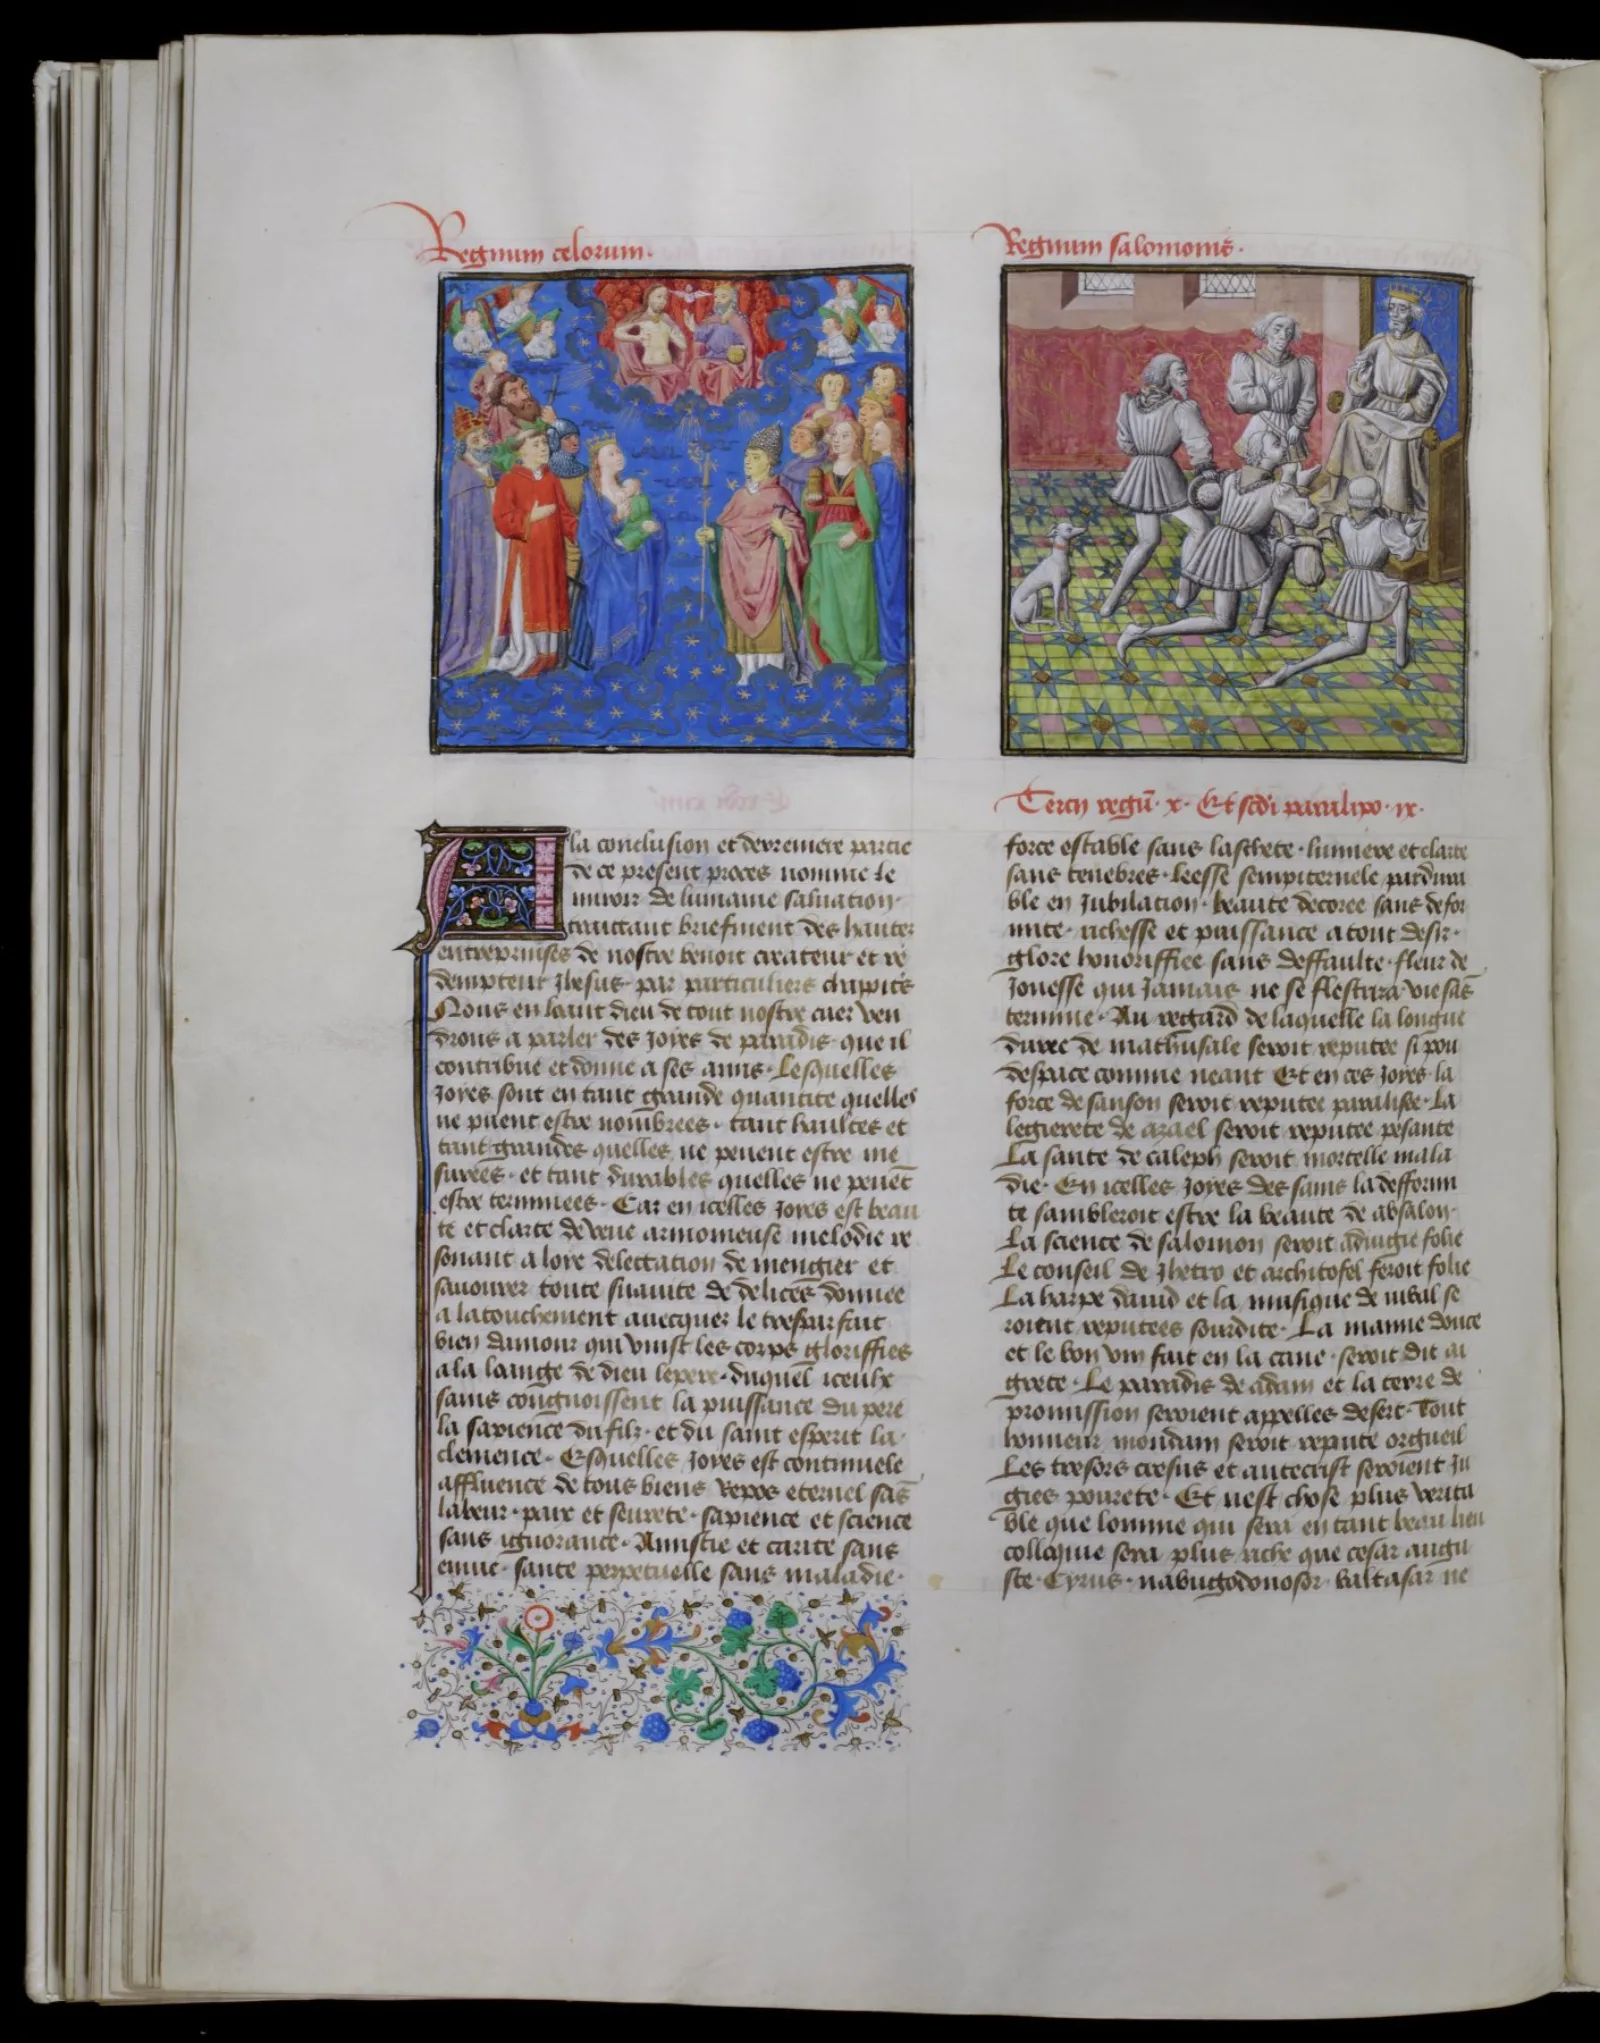 Regnum celorum.
A la conclusion et derreniere partie
de ce present proces nomme le
miroir de lumaine saluation.
traittant briefment des haultes
entreprinses de nostre benoit createur et re
dempteur Jhesus par particuliers chapitres
Nous en loant dieu de tout nostre cuer ven
drons a parler des Joyes de paradis que il
contribue et donne a ses amis. Lesquelles
Joyes sont en tant grande quantite quelles
ne puent estre nombrees. tant haultes et
tant grandes quelles ne peuent estre me
surees. et tant durables quelles ne peuent
estre terminees. Car en icelles Joyes est beau
te et clarte de veue armonieuse melodie re
sonant a lore delectation de mengier et
sauourer toute suauite de delices donnee
a latouchement auecques le tresparfait
bien damour qui vnist les corps gloriffies
a la loange de dieu le pere. duquel iceulx
sains congnoissent la puissance du pere
la sapience du filz. et du saint esperit la
clemence. Esquelles Joyes est continuele
affluence de tous biens Repos eternel sãs
labeur. paix et seurete. sapience et science
sans ignorance. Amistie et carite sans
enuie. sante perpetuelle sans maladie.
Regnum salomonis.
Tercij regũ. x. Et scdi paralipo. ix.
force estable sans laschete. lumiere et clarte
sans tenebres. leesse sempiternele pardura
ble en Jubilation. beaute decoree sans defor
mite. richesse et puissance a tout desir.
glore honoriffiee sans deffaulte. fleur de
Jonesse qui Jamais ne se flestrira vie sãs
termine. Au regard de laquelle la longue
duree de mathusale seroit reputee si pou
despace comme neant Et en ces Joyes la
force de sanson seroit reputee paralisee. La
legierete de azael seroit reputee pesante
La sante de caleph seroit mortelle mala
die. En icelles Joyes des sains la defformi
te sambleroit estre la beaute de absalon.
La science de salomon seroit adiugie folie
Le conseil de Jhetro et architofel seroit folie
La harpe dauid et la musique de iubal se
roient reputees sourdite. La manne douce
et le bon vin fait en la cane seroit dit ai
grete. Le paradis de adam et la terre de
promission seroient appelles desert. Tout
honneur mondain seroit repute orgueil
Les tresors cresus et antecrist seroient Ju
gies pourete. Et nest chose plus verita
ble que lomme qui sera en tant beau lieu
colloquie sera plus riche que cesar augu
ste. Cyrus. nabugodonosor. baltasar ne